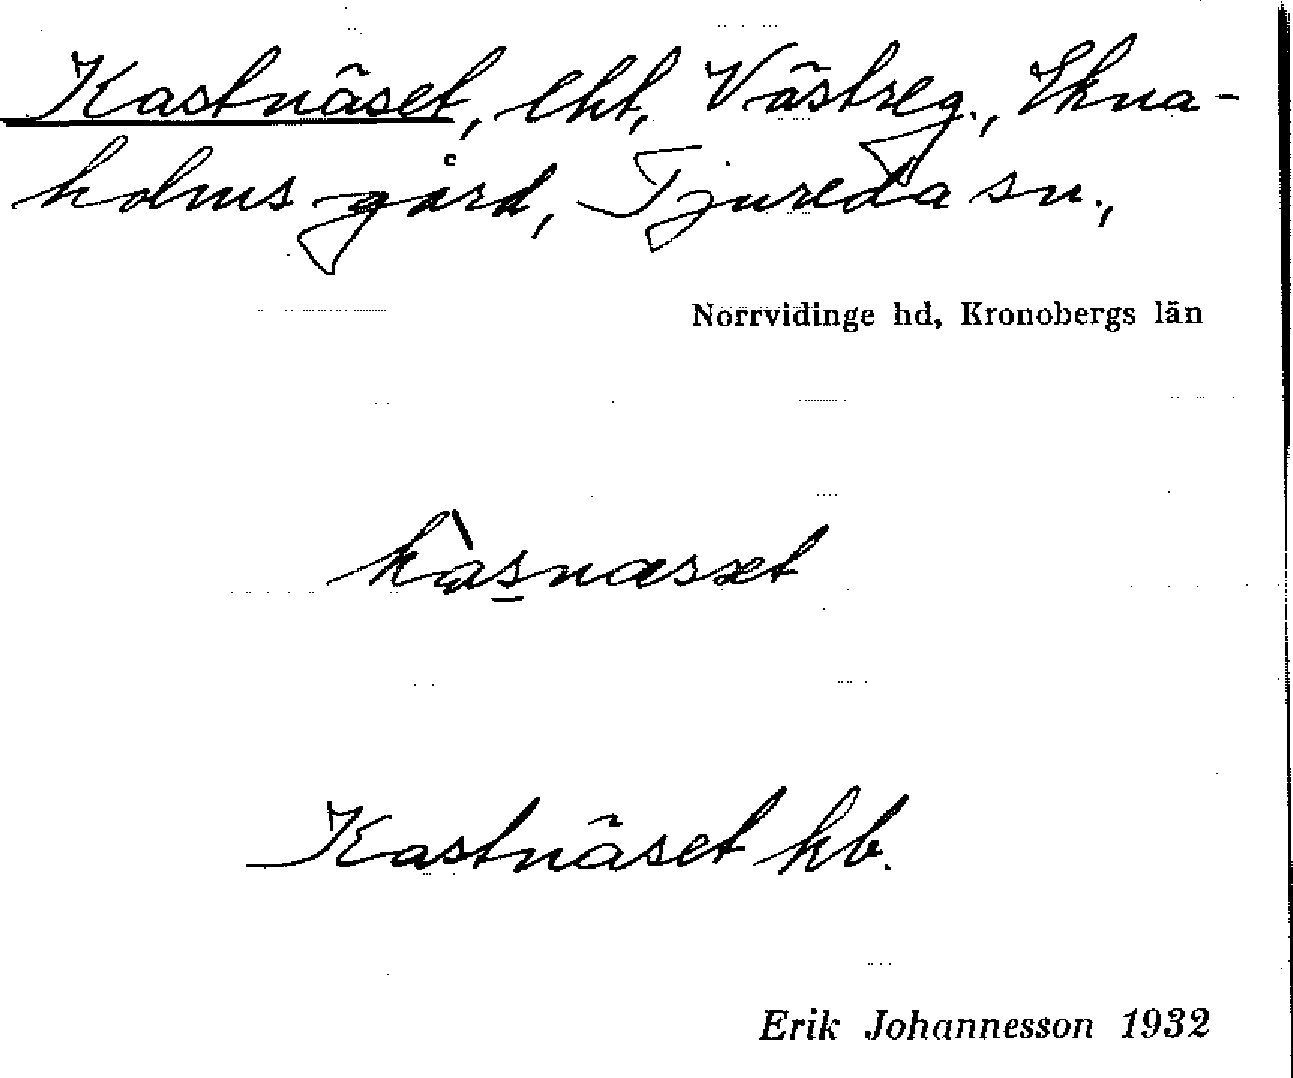 Kastnäset, lht, Västreg., Skna-
holms gård, Tjureda sn.,
Norrvidinge hd, Kronobergs län
kàsnæsət
Kastnäset kb.
Erik Johannesson 1932